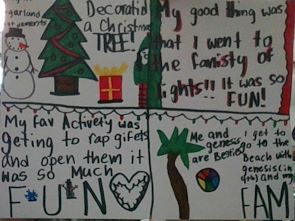 garland
Decoratid
a Christmas
TREE!
My good thing was
that I went to
the fantisty of
lights!! It was so
FUN!
My Fav Activety was
geting to rap gifets
and open them it
was so Much
FUN
Me and
genesis
are Besties
I get to
go to the
Beach with
genesis (in
and my
FAM